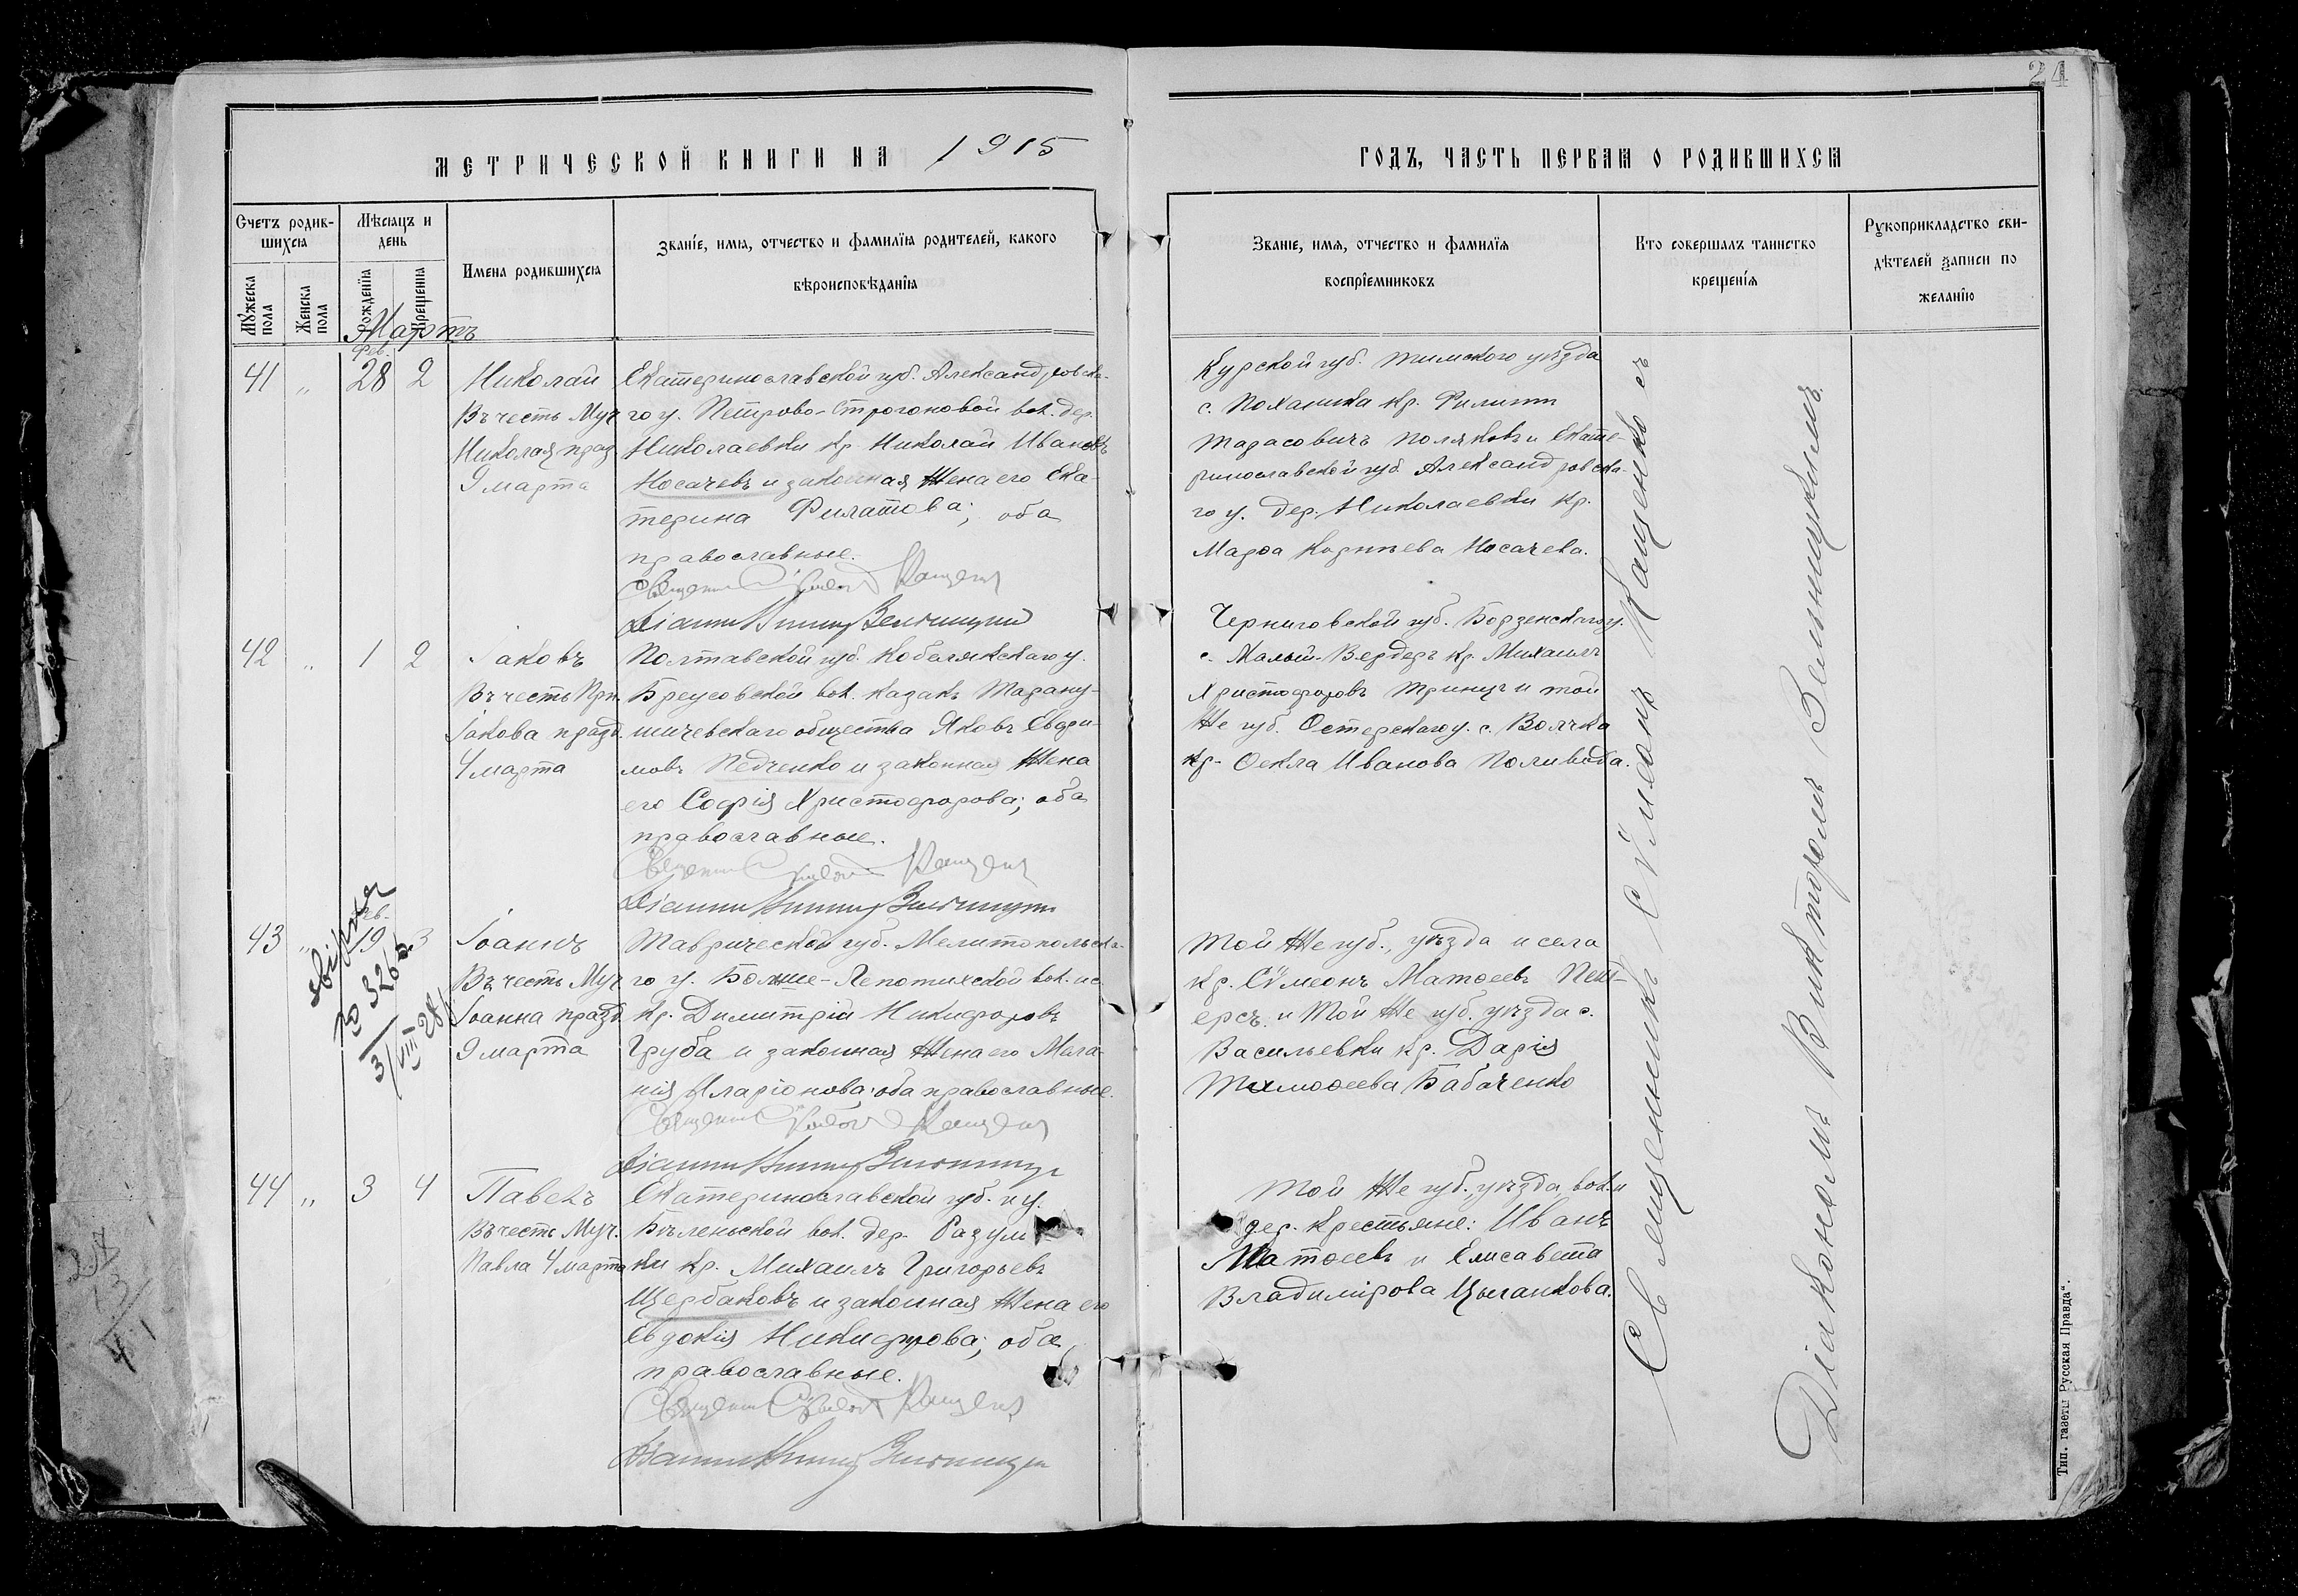 24
МЕТРИЧЕСКОЙ КНИГИ НА 1915
ГОДЪ, ЧАСТЬ ПЕРВАЯ О РОДИВШИХСЯ
Счетъ родив-
шихся
Мѣсяцъ и
день
Мужеска
пола
Женска
пола
Рожденія
Крещенія
Имена родившихся
Званіе, имя, отчество и фамилія родителей, какого
вѣроисповѣданія
Званіе, имя, отчество и фамилія
воспріемниковъ
Кто совершалъ таинство
крещенія
Рукоприкладство сви-
дѣтелей записи по
желанію
Мартъ
Фев.
41 „ 28 2
Николай
Въ честь Муч.
Николая праз.
9 марта
Екатеринославской губ. Александровска-
го у. Петрово-Строгоновой вол. дер.
Николаевки кр. Николай Ивановъ
Носачевъ и законная жена его Ека-
терина Филатова; оба
православные.
Курской губ. Тимского уѣзда
с. кр. Филиппъ
Тарасовичъ Поляковъ и Екате-
ринославской губ. Александровска-
го у. дер. Николаевки кр.
Марѳа Носачева.
42 „ 1 2
Іаковъ
Въ честь Прп.
Іакова празд.
4 марта
Полтавской губ. Кобелякскаго у.
Бреусовской вол. казакъ
общества Яковъ
Педченко и законная жена
его Софія Христофорова; оба
православные.
Черниговской губ. Борзенскаго у.
с. Малый- кр. Михаилъ
Христофоровъ и той
же губ. Остерскаго у. с. Волчка
кр. Ѳекла Иванова Поливода.
43 „ Фев. 19 3
Іоаннъ
Въ честь Муч
Іоанна празд.
9 марта
№ 3262
3/VIII 28
Таврической губ. Мелитопольска-
го у. Больше-Лепотихской вол. и с.
кр. Димитрій Никифоровъ
Груба и законная жена его Мела-
нія Иларіонова; оба православные.
Той же губ., уѣзда и села
кр. Сѵмеонъ Матѳеевъ
и той же губ. уѣзда с.
Васильевки кр. Дарія
Тимоѳеева Бабаченко
44 „ 3 4
Павелъ
Въ честь Муч.
Павла 4 марта
Екатеринославской губ. и у.
Бѣленьской вол. дер. Разум
ки кр. Михаилъ Григорьевъ
Щербаковъ и законная жена его
Евдокія Никифорова; оба
православные.
Той же губ., уѣзда, вол. и
дер. крестьяне: Иванъ
Матѳеевъ и Елисавета
Владимірова Цыганкова.
Священникъ Сѵмеонъ Кащенко съ
Діакономъ Викторомъ
Тип. газеты Русская Правда".